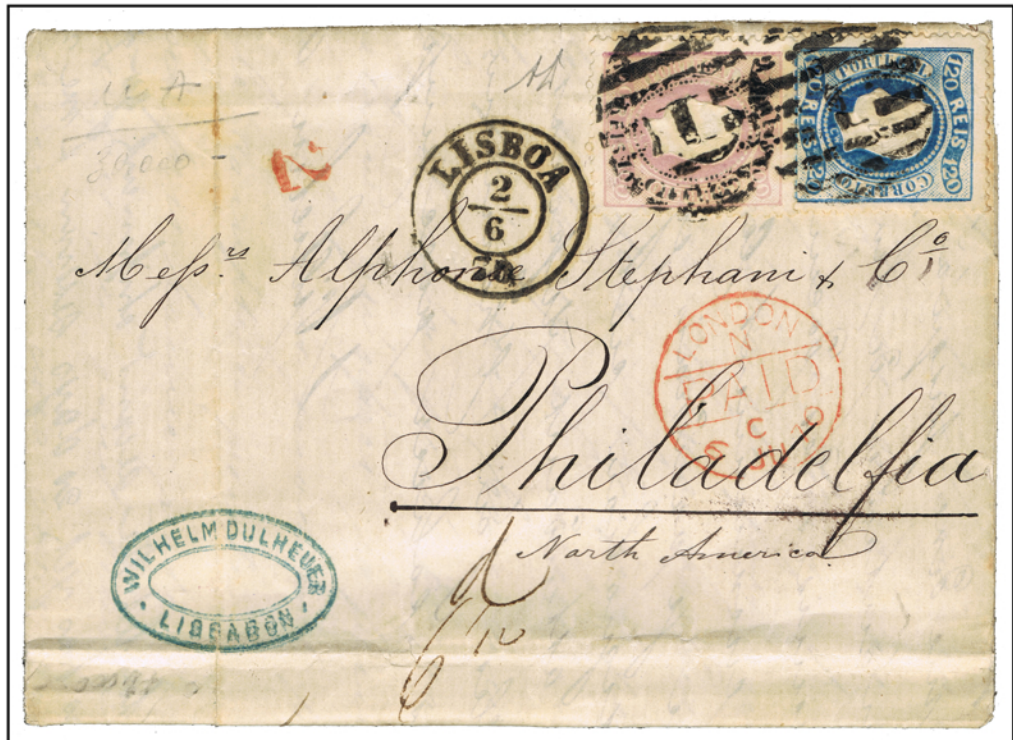 30.000
2
LISBOA
2
6
70
PORTUGAL
120 REIS 120
120 REIS 120
CORREIO
1
1
Messrs Alphonse Stephani & Co
LONDON
N
PAID
C
6 JU 70
Philadelfia
North America
WILHELM DULHEUER
LISSABON